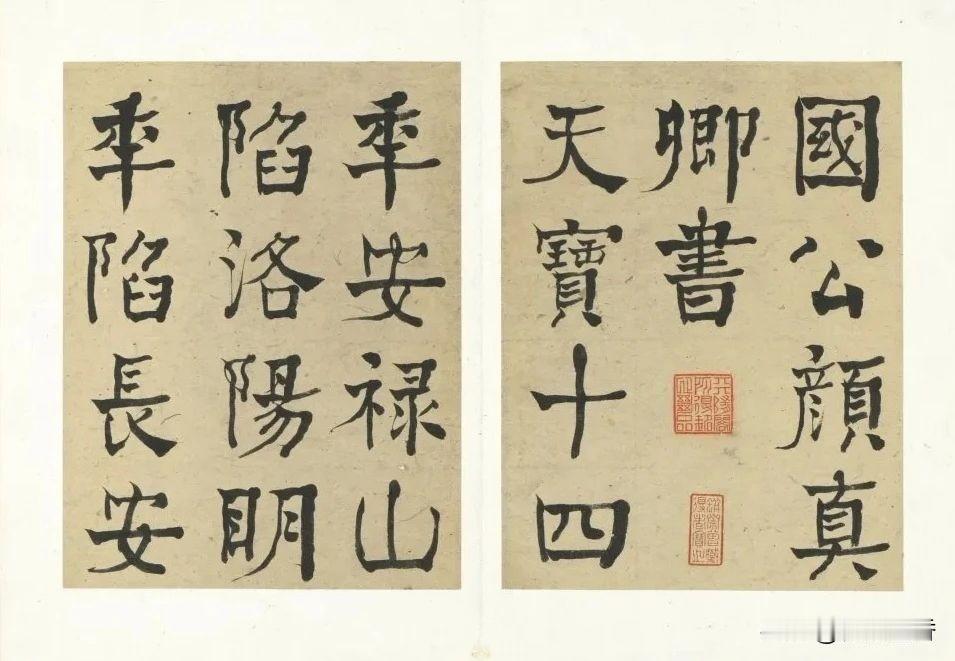 國公顔真
卿書
天寶十四
秊安禄山
陷洛陽明
秊陷長安